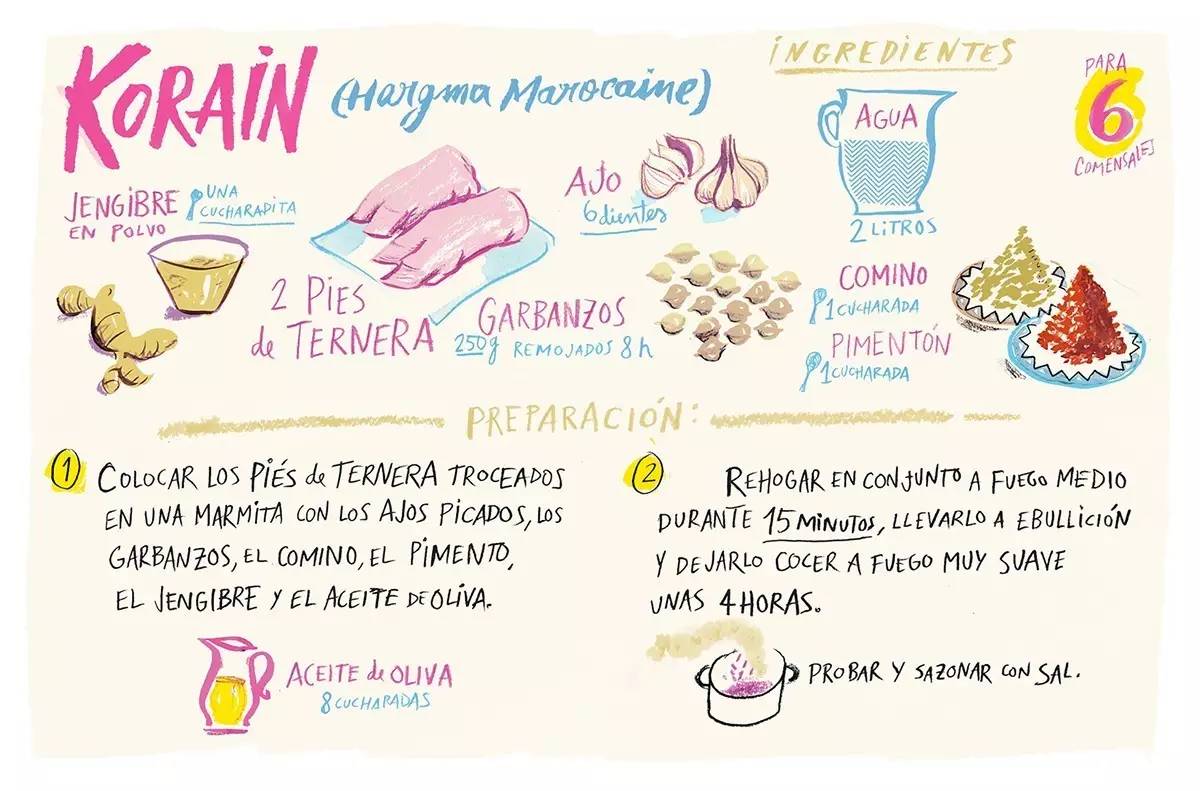 KORAIN
(Hargma Marocaine)
INGREDIENTES
PARA
6
COMENSALES
JENGIBRE
EN POLVO
UNA
CUCHARADITA
2 PIES
de TERNERA
AJO
6 dientes
AGUA
2 LITROS
GARBANZOS
250g REMOJADOS 8h
COMINO
1 CUCHARADA
PIMENTÓN
1 CUCHARADA
PREPARACIÓN:
1
COLOCAR LOS PIÉS de TERNERA TROCEADOS
EN UNA MARMITA CON LOS AJOS PICADOS, LOS
GARBANZOS, EL COMINO, EL PIMENTO,
EL JENGIBRE Y EL ACEITE DE OLIVA.
ACEITE de OLIVA
8 CUCHARADAS
2
REHOGAR EN CONJUNTO A FUEGO MEDIO
DURANTE 15 MINUTOS, LLEVARLO A EBULLICIÓN
Y DEJARLO COCER A FUEGO MUY SUAVE
UNAS 4 HORAS.
PROBAR Y SAZONAR CON SAL.